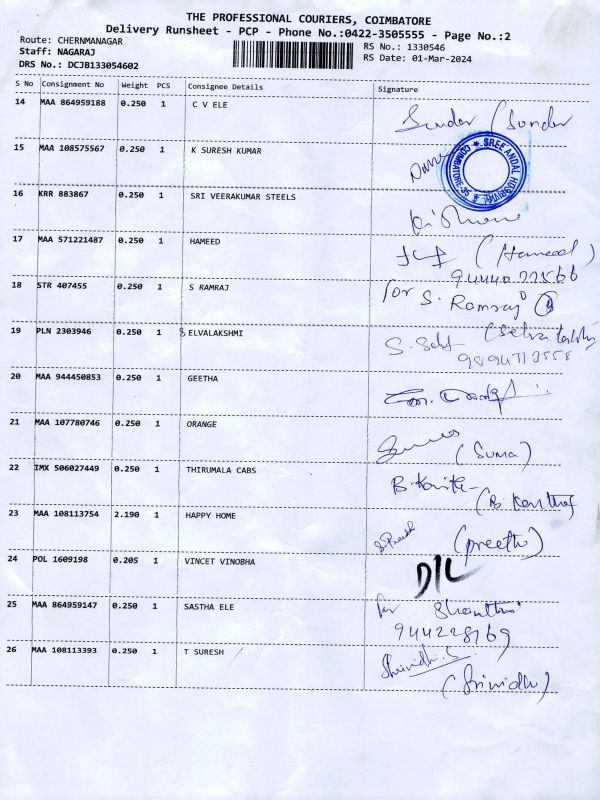 THE PROFESSIONAL COURIERS, COIMBATORE
Delivery Runsheet - PCP - Phone No.:0422-3505555 - Page No.:2
Route: CHERNMANAGAR
RS No.: 1330546
Staff: NAGARAJ
RS Date: 01-Mar-2024
DRS No.: DCJB133054602
S No Consignment No Weight PCS Consignee Details Signature
14 MAA 864959188 0.250 1 C V ELE Sundar (Sundar
15 MAA 108575567 0.250 1 K SURESH KUMAR
SREE ANDAL HOSPITAL
COIMBATORE-35
16 KRR 883867 0.250 1 SRI VEERAKUMAR STEELS
17 MAA 571221487 0.250 1 HAMEED (Hameed)
18 STR 407455 0.250 1 S RAMRAJ for S. Ramraj
19 PLN 2303946 0.250 1 SELVALAKSHMI
20 MAA 944450853 0.250 1 GEETHA
21 MAA 107780746 0.250 1 ORANGE (Suma)
22 IMX 506027449 0.250 1 THIRUMALA CABS
23 MAA 108113754 2.190 1 HAPPY HOME (preethi)
24 POL 1609198 0.205 1 VINCET VINOBHA D/L
25 MAA 864959147 0.250 1 SASTHA ELE for
26 MAA 108113393 0.250 1 T SURESH Shrinidhi.S
(Srinidhi)